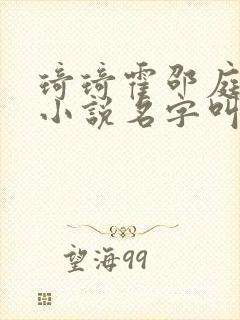 琦琦霍邵庭
小说名字叫
望海99